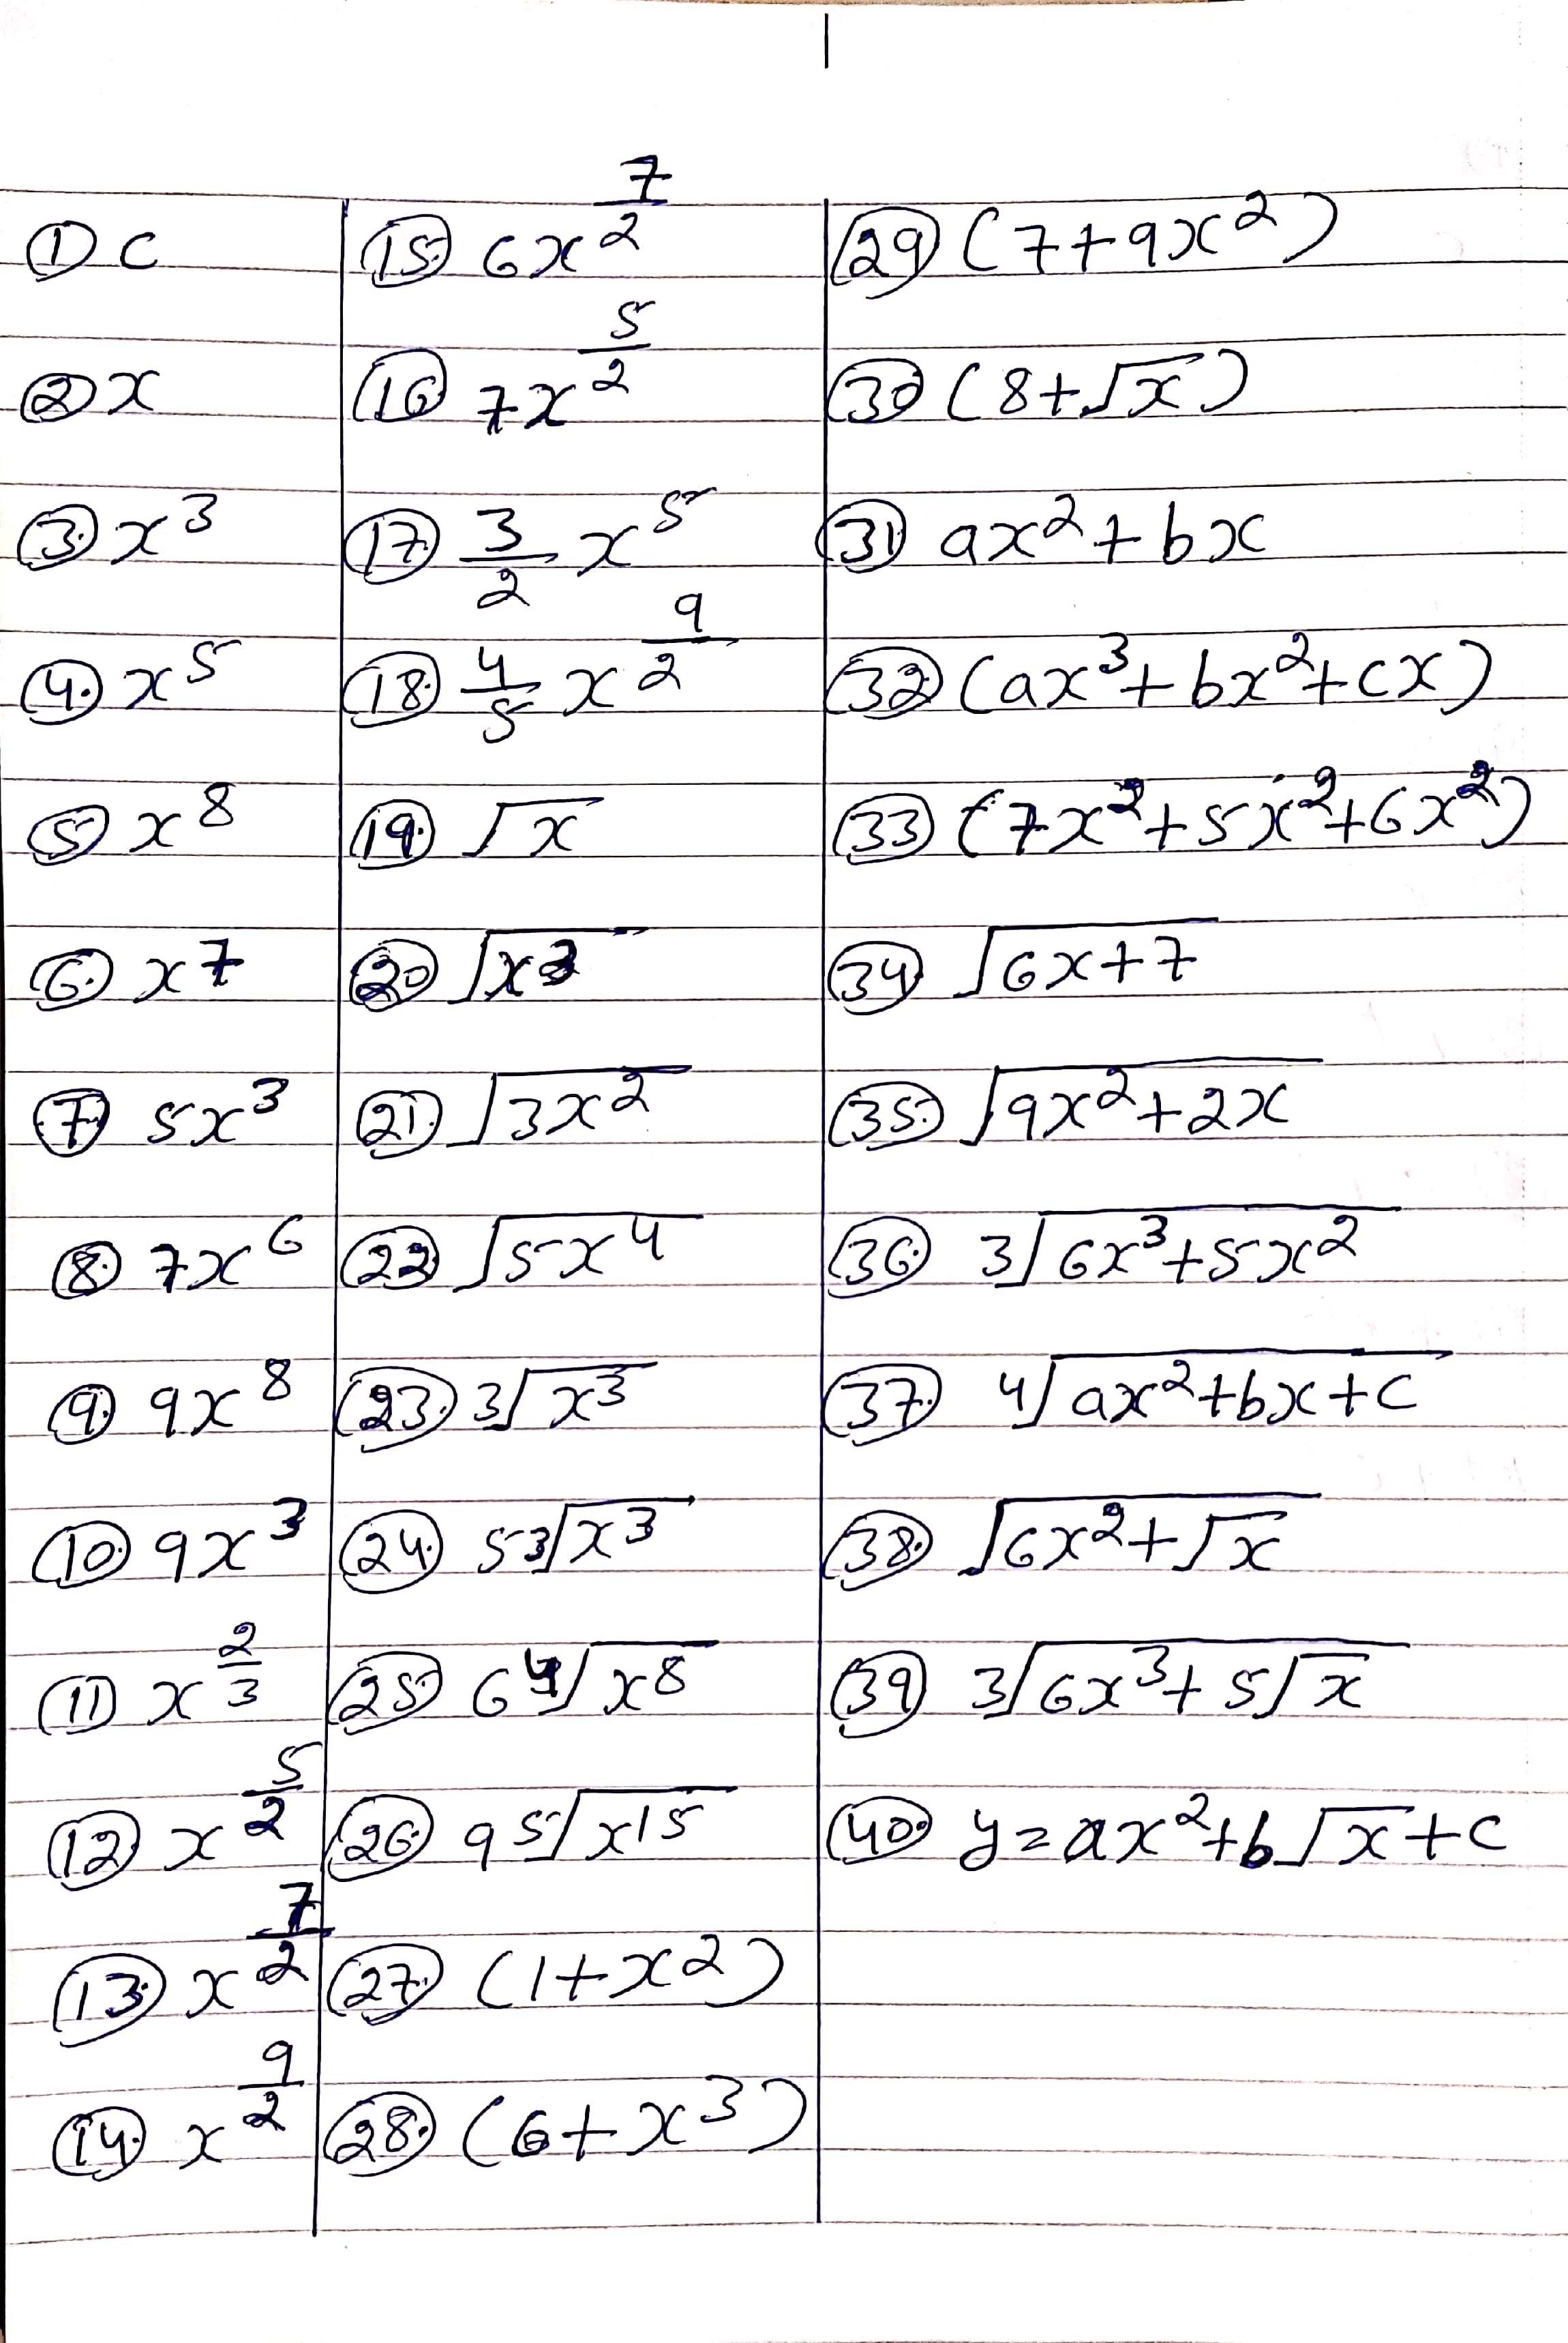 ① c
② x
③ x³
④ x⁵
⑤ x⁸
⑥ x⁷
⑦ 5x³
⑧ 7x⁶
⑨ 9x⁸
⑩ 9x³
⑪ x^(2/3)
⑫ x^(5/2)
⑬ x^(7/2)
⑭ x^(9/2)
⑮ 6x^(7/2)
⑯ 7x^(5/2)
⑰ 3/2 x⁵
⑱ 4/5 x^(9/2)
⑲ √x
⑳ √(x3)
㉑ √(3x²)
㉒ √(5x⁴)
㉓ 3√(x³)
㉔ 5 3√(x³)
㉕ 6 4√(x⁸)
㉖ 9 5√(x15)
㉗ (1+x²)
㉘ (6+x³)
㉙ (7+9x²)
㉚ (8+√x)
㉛ ax²+bx
㉜ (ax³+bx²+cx)
㉝ (7x²+5x²+6x²)
㉞ √(6x+7)
㉟ √(9x²+2x)
㊱ 3√(6x³+5x²)
㊲ 4√(ax²+bx+c)
㊳ √(6x²+√x)
㊴ 3√(6x³+5√x)
㊵ y=ax²+b√x+c